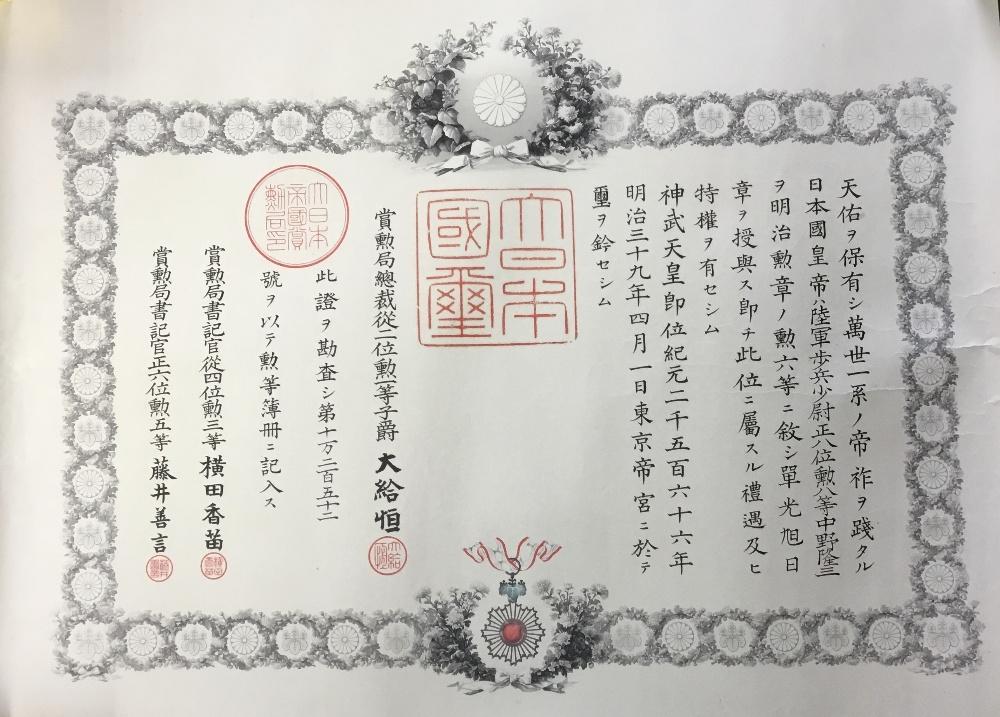 天佑ヲ保有シ萬世一系ノ帝祚ヲ踐タル
日本國皇帝ハ陸軍歩兵少尉正八位勲八等中野隆三
ヲ明治勲章ノ勲六等ニ敘シ單光旭日
章ヲ授與ス即チ此位ニ屬スル禮遇及ヒ
特權ヲ有セシム
神武天皇即位紀元二千五百六十六年
明治三十九年四月一日東京帝宮ニ於テ
璽ヲ鈐セシム
大日本
國璽
賞勲局總裁從二位勲一等子爵大給恒
大給恒
此證ヲ勘査シ第十万二百五十二
號ヲ以テ勲等簿冊ニ記入ス
大日本
帝國賞
勲局印
賞勲局書記官從四位勲三等橫田香苗
賞勲局書記官正六位勲五等藤井善言